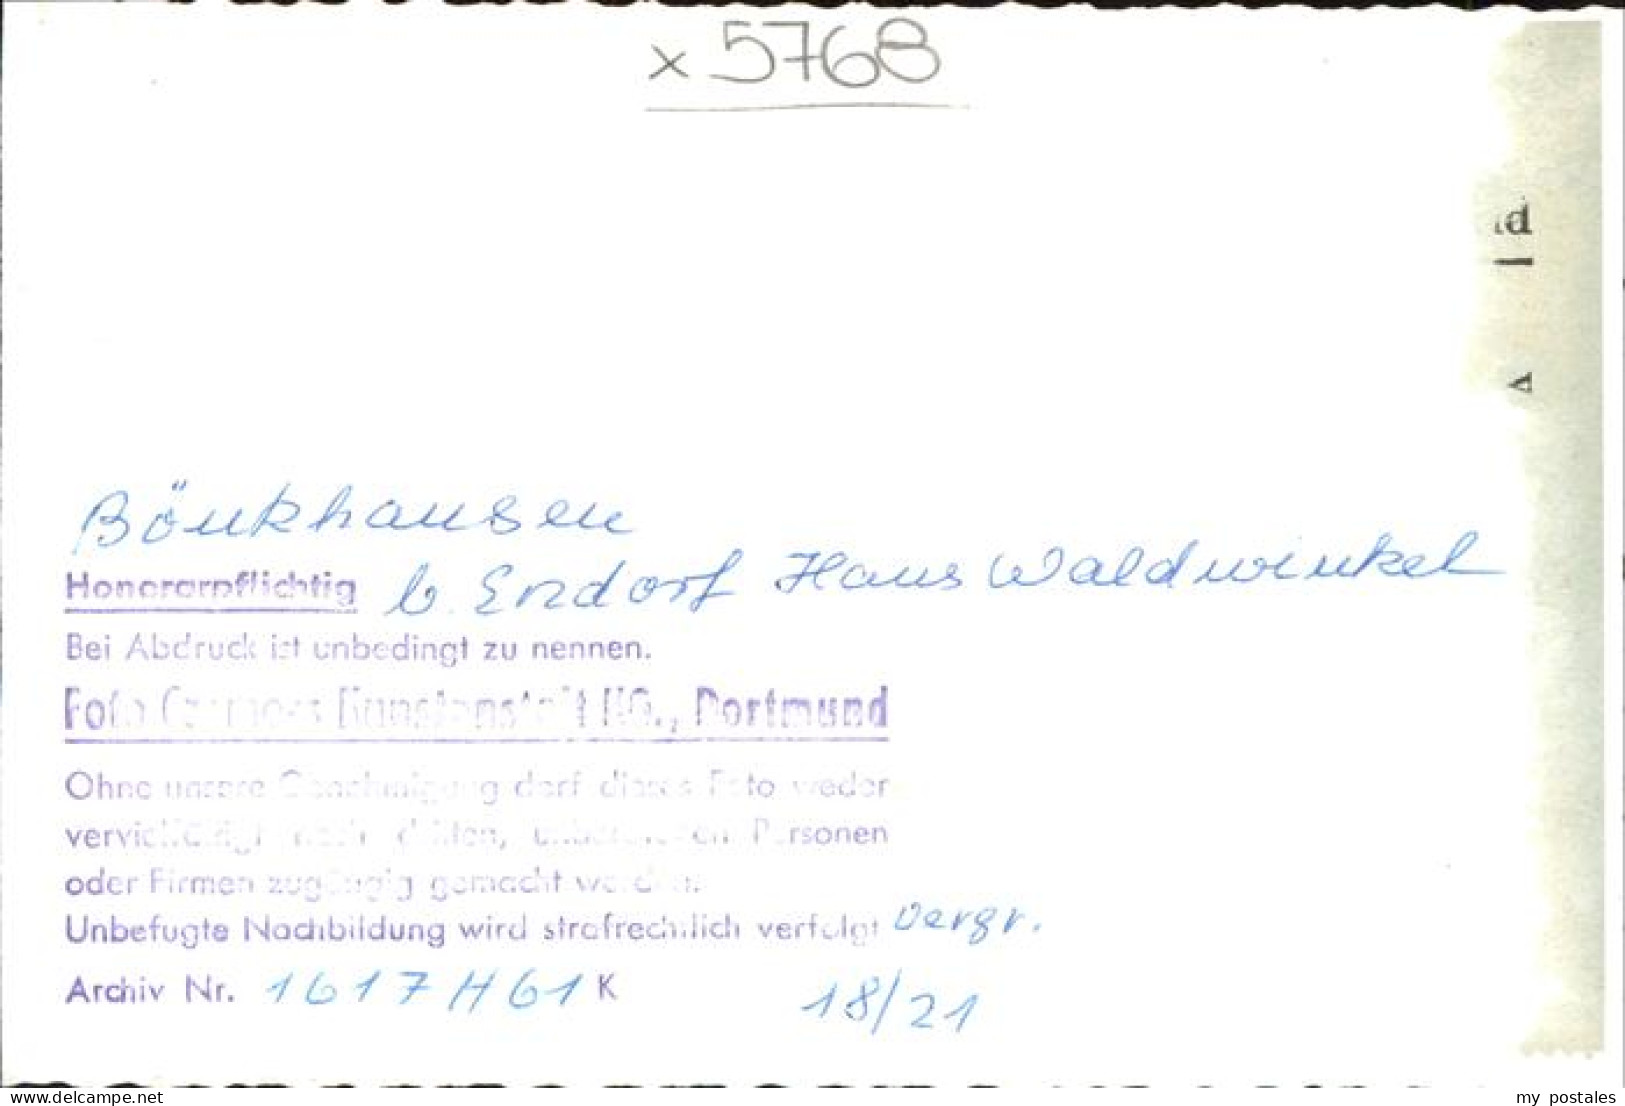 x 5768
d
Bönkhausen
b. Endorf Haus Waldwinkel
Honorarpflichtig
Bei Abdruck ist unbedingt zu nennen.
Foto Cramers Kunstanstalt KG., Dortmund
Ohne unsere Genehmigung darf dieses Foto weder
vervielfältigt noch dritten, Personen
oder Firmen zugängig gemacht werden.
Unbefugte Nachbildung wird strafrechtlich verfolgt vergr.
Archiv Nr. 1617 H 61 K 18/21
www.delcampe.net
my_postales